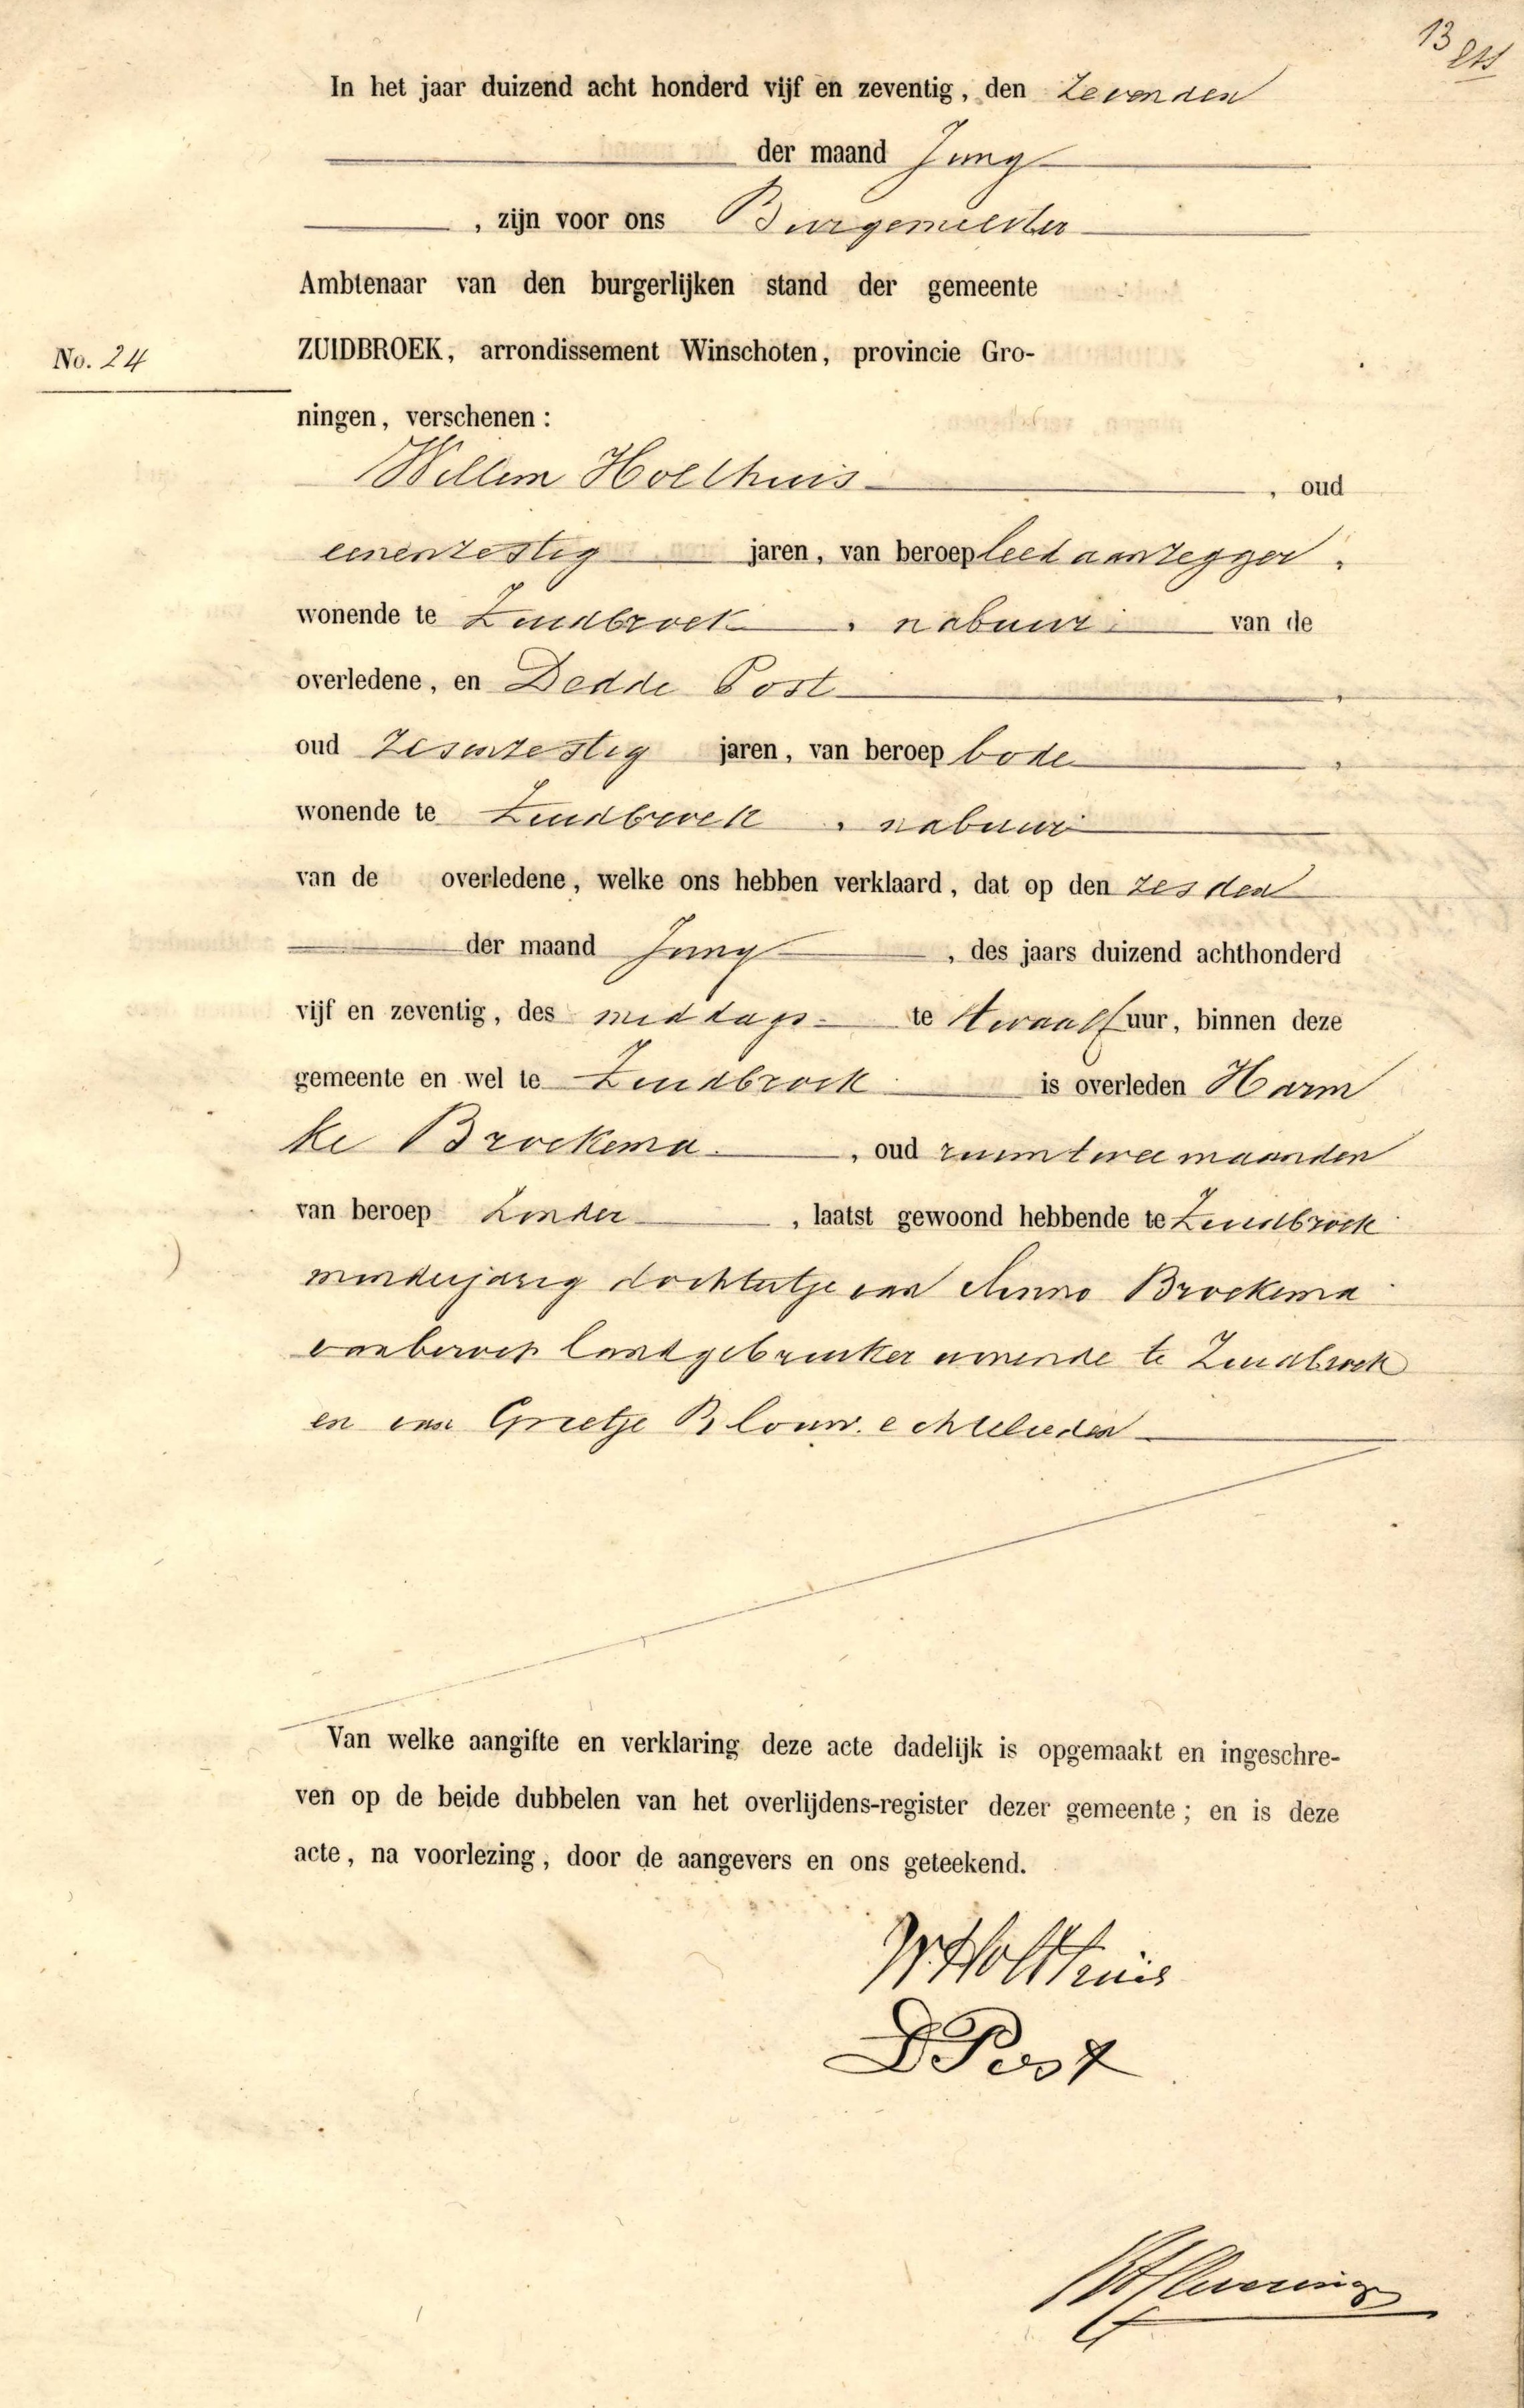 13
In het jaar duizend acht honderd vijf en zeventig, den Zevenden
der maand Juny
, zijn voor ons Burgemeester
Ambtenaar van den burgerlijken stand der gemeente
ZUIDBROEK, arrondissement Winschoten, provincie Gro-
No. 24
ningen, verschenen:
Willem Holthuis , oud
eenenzestig jaren, van beroep leedaanzegger,
wonende te Zuidbroek, nabuur van de
overledene, en Dedde Post,
oud Zesenzestig jaren, van beroep bode,
wonende te Zuidbroek, nabuur
van de overledene, welke ons hebben verklaard, dat op den zesden
der maand Juny, des jaars duizend achthonderd
vijf en zeventig, des middags te twaalf uur, binnen deze
gemeente en wel te Zuidbroek is overleden Harm
ke Broekema, oud ruim twee maanden
van beroep Zonder, laatst gewoond hebbende te Zuidbroek
minderjarig dochtertje van Menno Broekema
van beroep landgebruiker wonende te Zuidbroek
en van Grietje Blouw. echtelieden
Van welke aangifte en verklaring deze acte dadelijk is opgemaakt en ingeschre-
ven op de beide dubbelen van het overlijdens-register dezer gemeente; en is deze
acte, na voorlezing, door de aangevers en ons geteekend.
W Holthuis
D Post